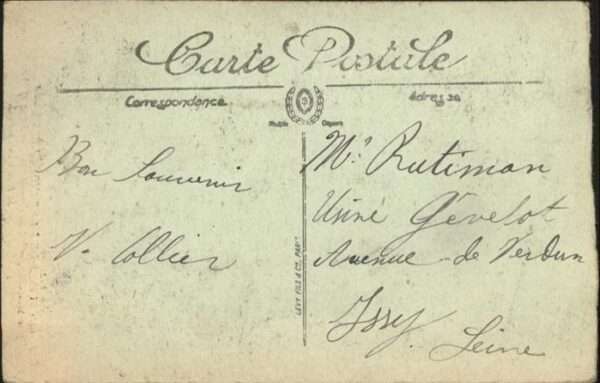 Carte Postale
Correspondance
Adresse
Bon Souvenir
V. Collier
LEVY FILS & Cie, PARIS
Mr Rutiman
Usine Gévelot
Avenue de Verdun
Issy. Seine